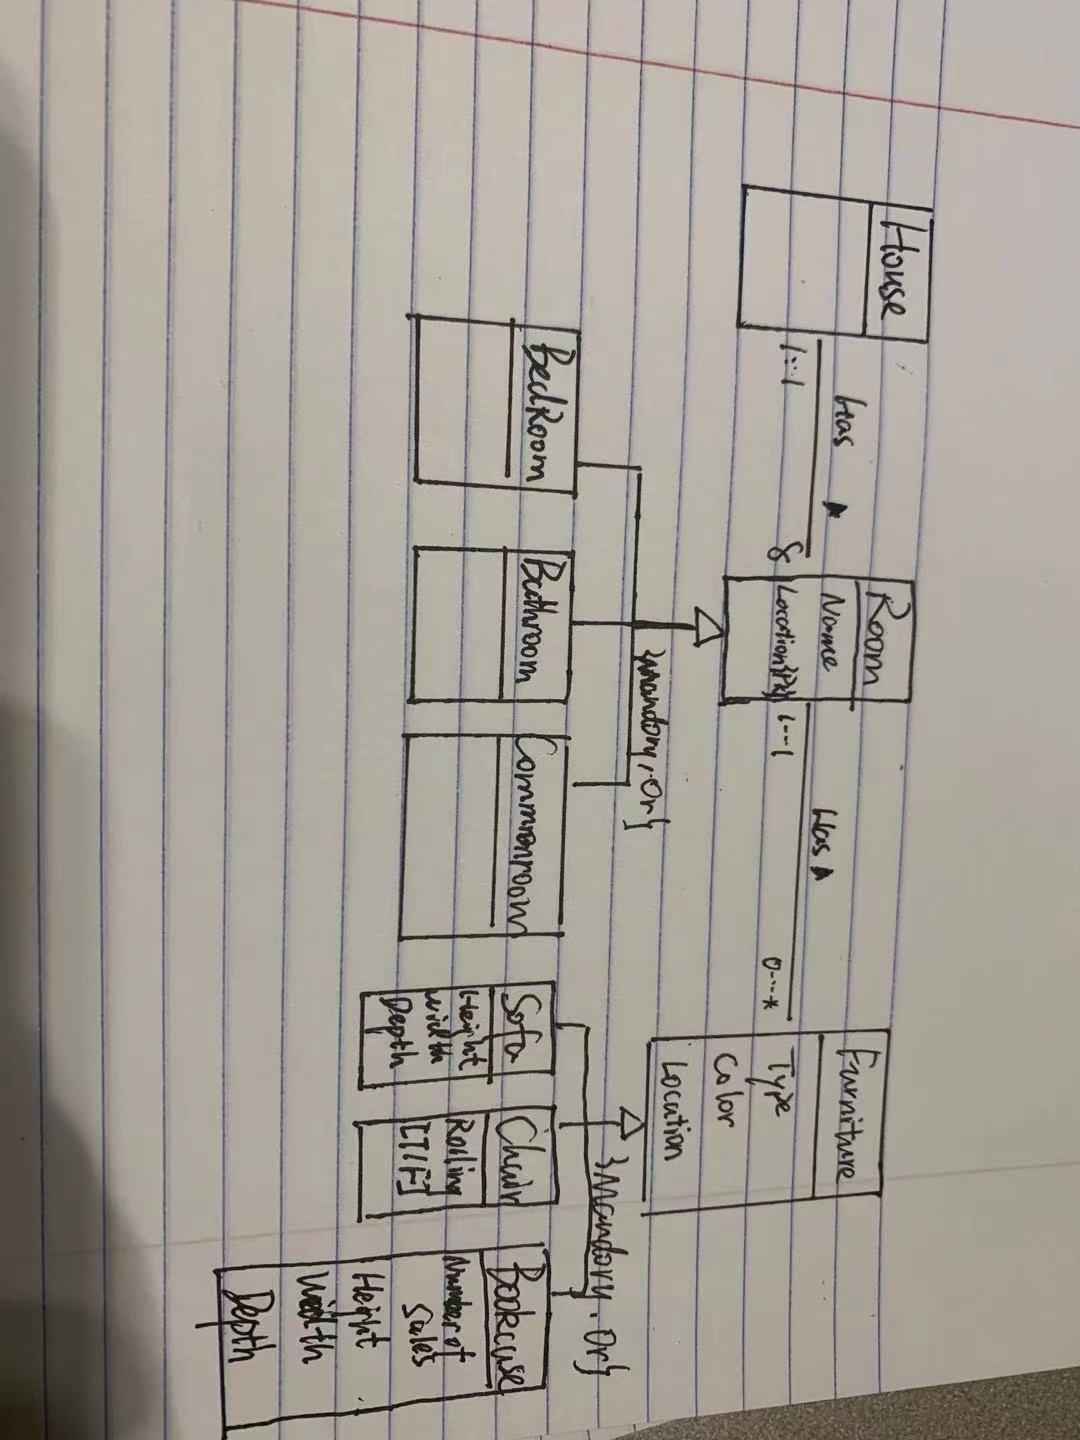 House
Has
1...1
8
Room
Name
Location{PK}
Has
1...1
0...*
Furniture
Type
Color
Location
{Mandory, Or}
BedRoom
Bathroom
Commonroom
{Mandory, Or}
Sofa
Height
width
Depth
Chair
Rolling
[T/F]
Bookcase
Number of
Sales
Height
Width
Depth